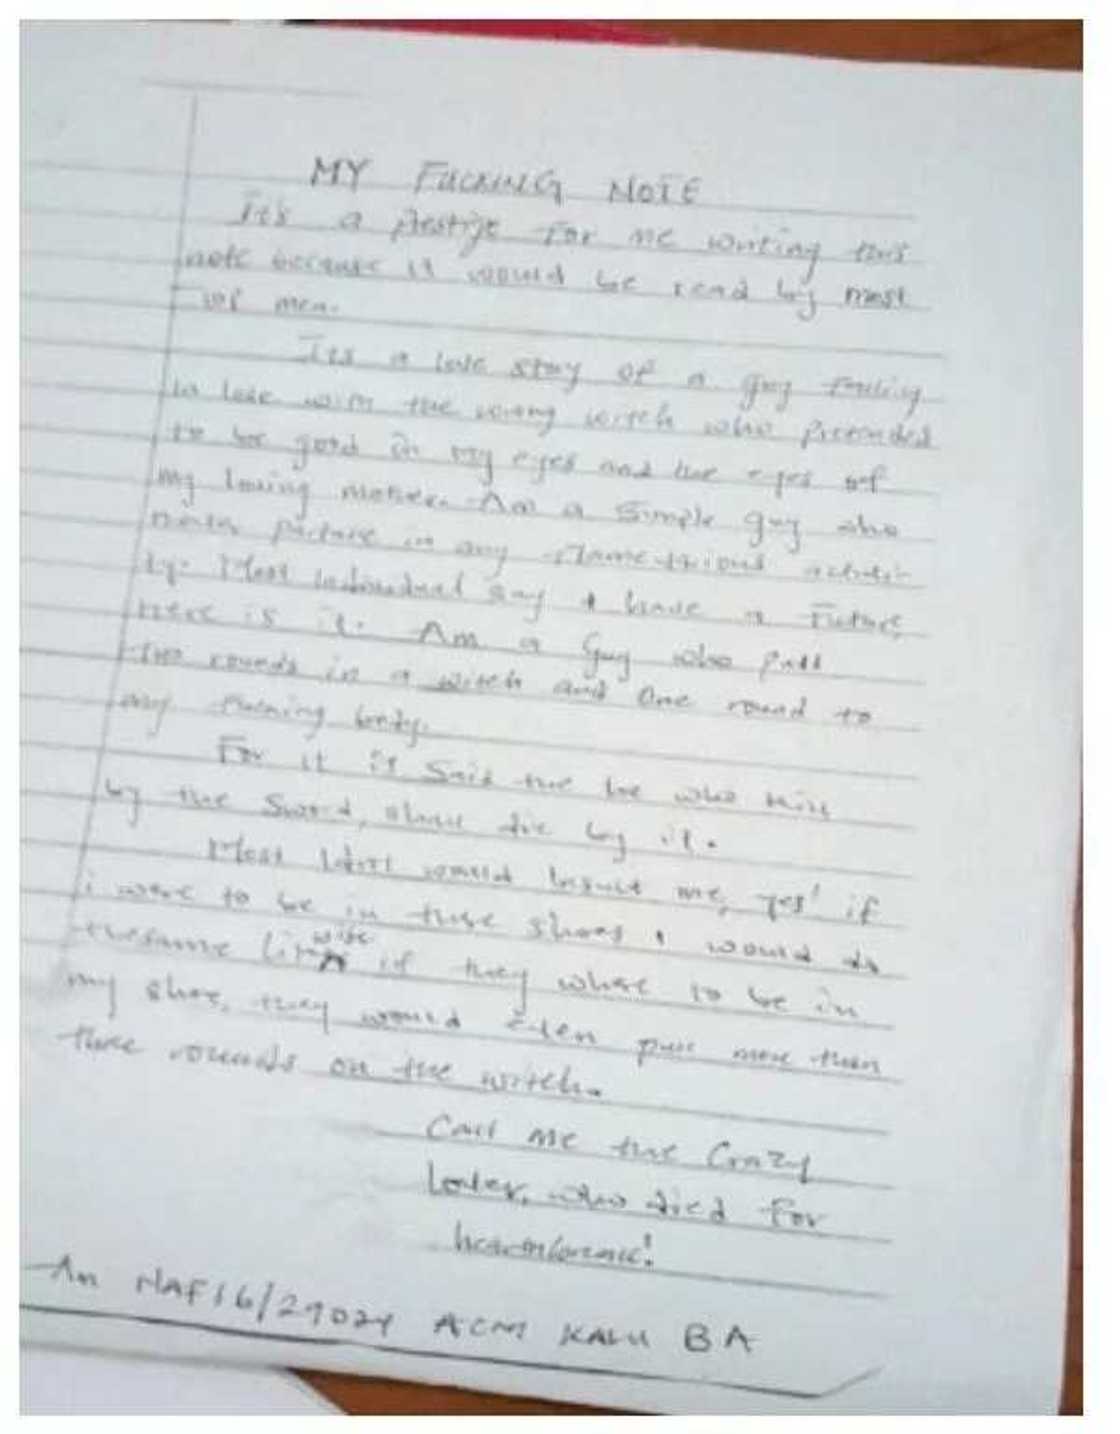 MY FUCKING NOTE
It's a Prestige for me writing this
note because it would be read by most
of men.
Its a love story of a guy falling
in love with the wrong witch who pretended
to be good in my eyes and the eyes of
my loving mother. Am a simple guy who
picture in any activi-
ty. Most individual say I have a Future,
here is it. Am a Guy who Putt
two rounds in a witch and One round to
my fucking body.
For it is Said the he who kill
by the Sword, shall die by it.
Most would insult me, yes! if
i were to be in those shoes i would do
thesame likewise if they where to be in
my shoe, they would even put more than
three rounds on the witch.
Call me the Crazy
Lover, who died for
Am NAF16/29024 ACM KALU BA